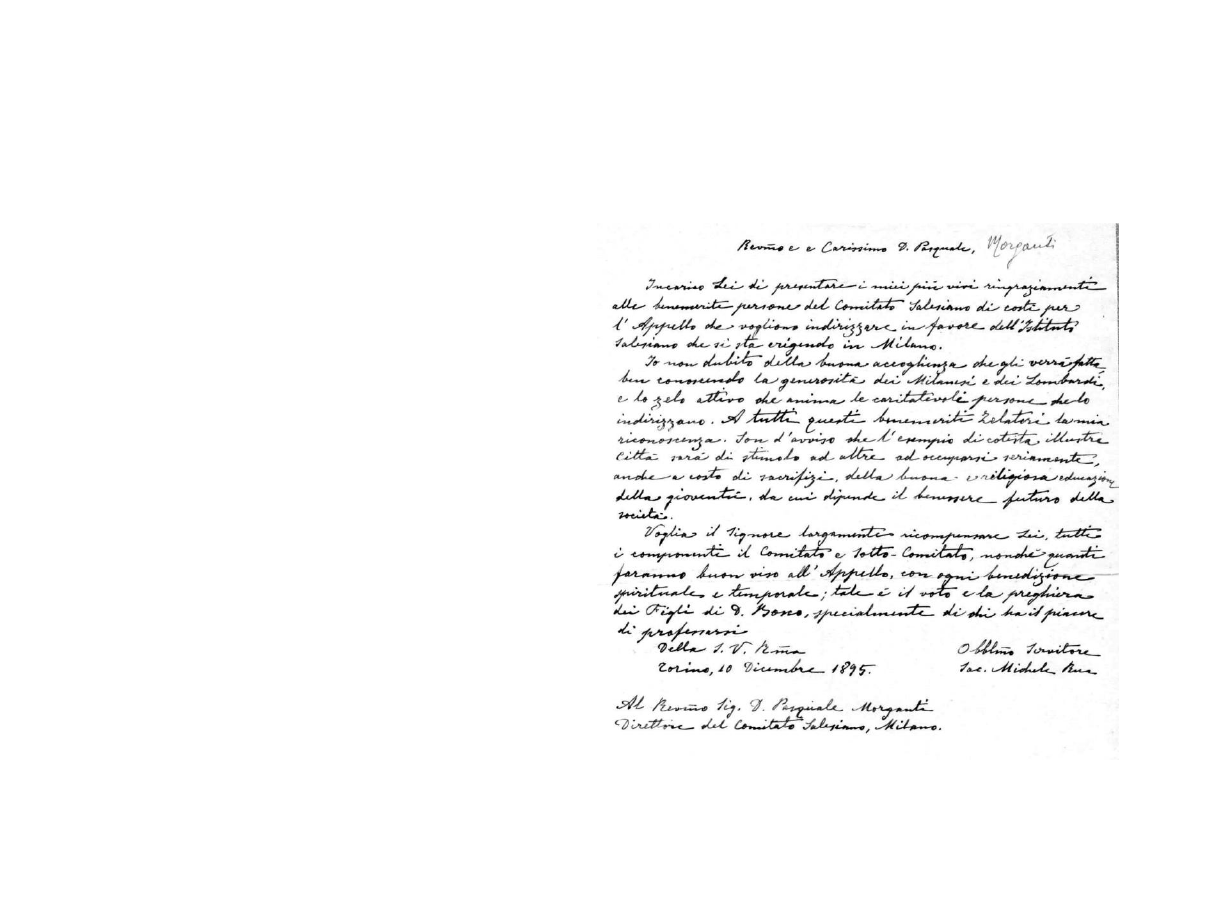 Revmo e Carissimo D. Pasquale, Morganti
Incarico Lei di presentare i miei più vivi ringraziamenti
alle benemerite persone del Comitato Salesiano di costì per
l'Appello che vogliono indirizzare in favore dell'Istituto
Salesiano che si sta erigendo in Milano.
Io non dubito della buona accoglienza che gli verrà fatta,
ben conoscendo la generosità dei Milanesi e dei Lombardi,
e lo zelo attivo che anima le caritatevoli persone che lo
indirizzano. A tutti questi benemeriti Zelatori la mia
riconoscenza. Son d'avviso che l'esempio di cotesta illustre
Città sarà di stimolo ad altre ad occuparsi seriamente,
anche a costo di sacrifizi, della buona e religiosa educazione
della gioventù, da cui dipende il benessere futuro della
società.
Voglia il Signore largamente ricompensare Lei, tutti
i componenti il Comitato e Sotto-Comitato, nonchè quanti
faranno buon viso all'Appello, con ogni benedizione
spirituale e temporale; tale è il voto e la preghiera
dei Figli di D. Bosco, specialmente di chi ha il piacere
di professarsi
Della S. V. Rma Obblmo Servitore
Torino, 10 Dicembre 1895. Sac. Michele Rua
Al Revmo Sig. D. Pasquale Morganti
Direttore del Comitato Salesiano, Milano.